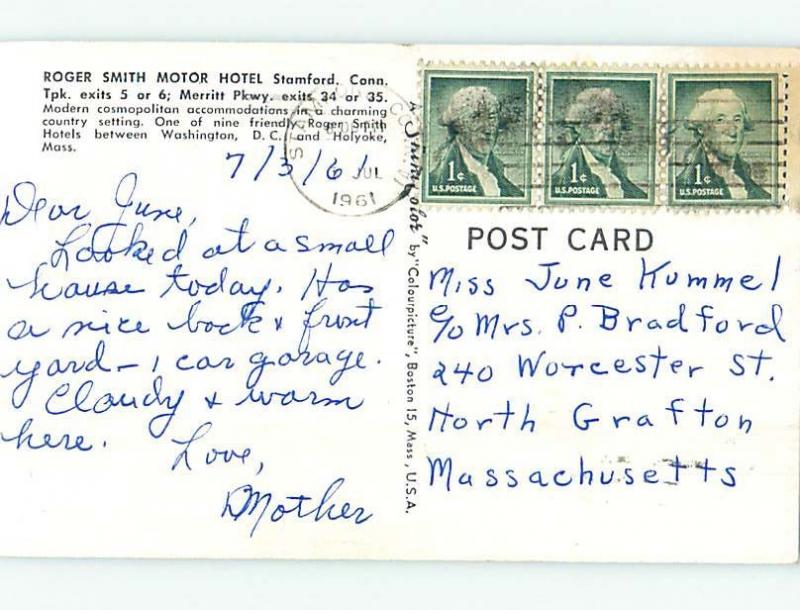 ROGER SMITH MOTOR HOTEL Stamford, Conn.
Tpk. exits 5 or 6; Merritt Pkwy. exits 34 or 35.
Modern cosmopolitan accommodations in a charming
country setting. One of nine friendly Roger Smith
Hotels between Washington, D. C. and Holyoke,
Mass.
7/3/61
Dear June,
Looked at a small
house today. Has
a nice back & front
yard – 1 car garage.
Cloudy & warm
here. Love,
Mother
JUL
1961
1¢
U.S. POSTAGE
1¢
U.S. POSTAGE
1¢
U.S. POSTAGE
by "Colourpicture", Boston 15, Mass., U.S.A.
POST CARD
Miss June Kummel
c/o Mrs. P. Bradford
240 Worcester St.
North Grafton
Massachusetts